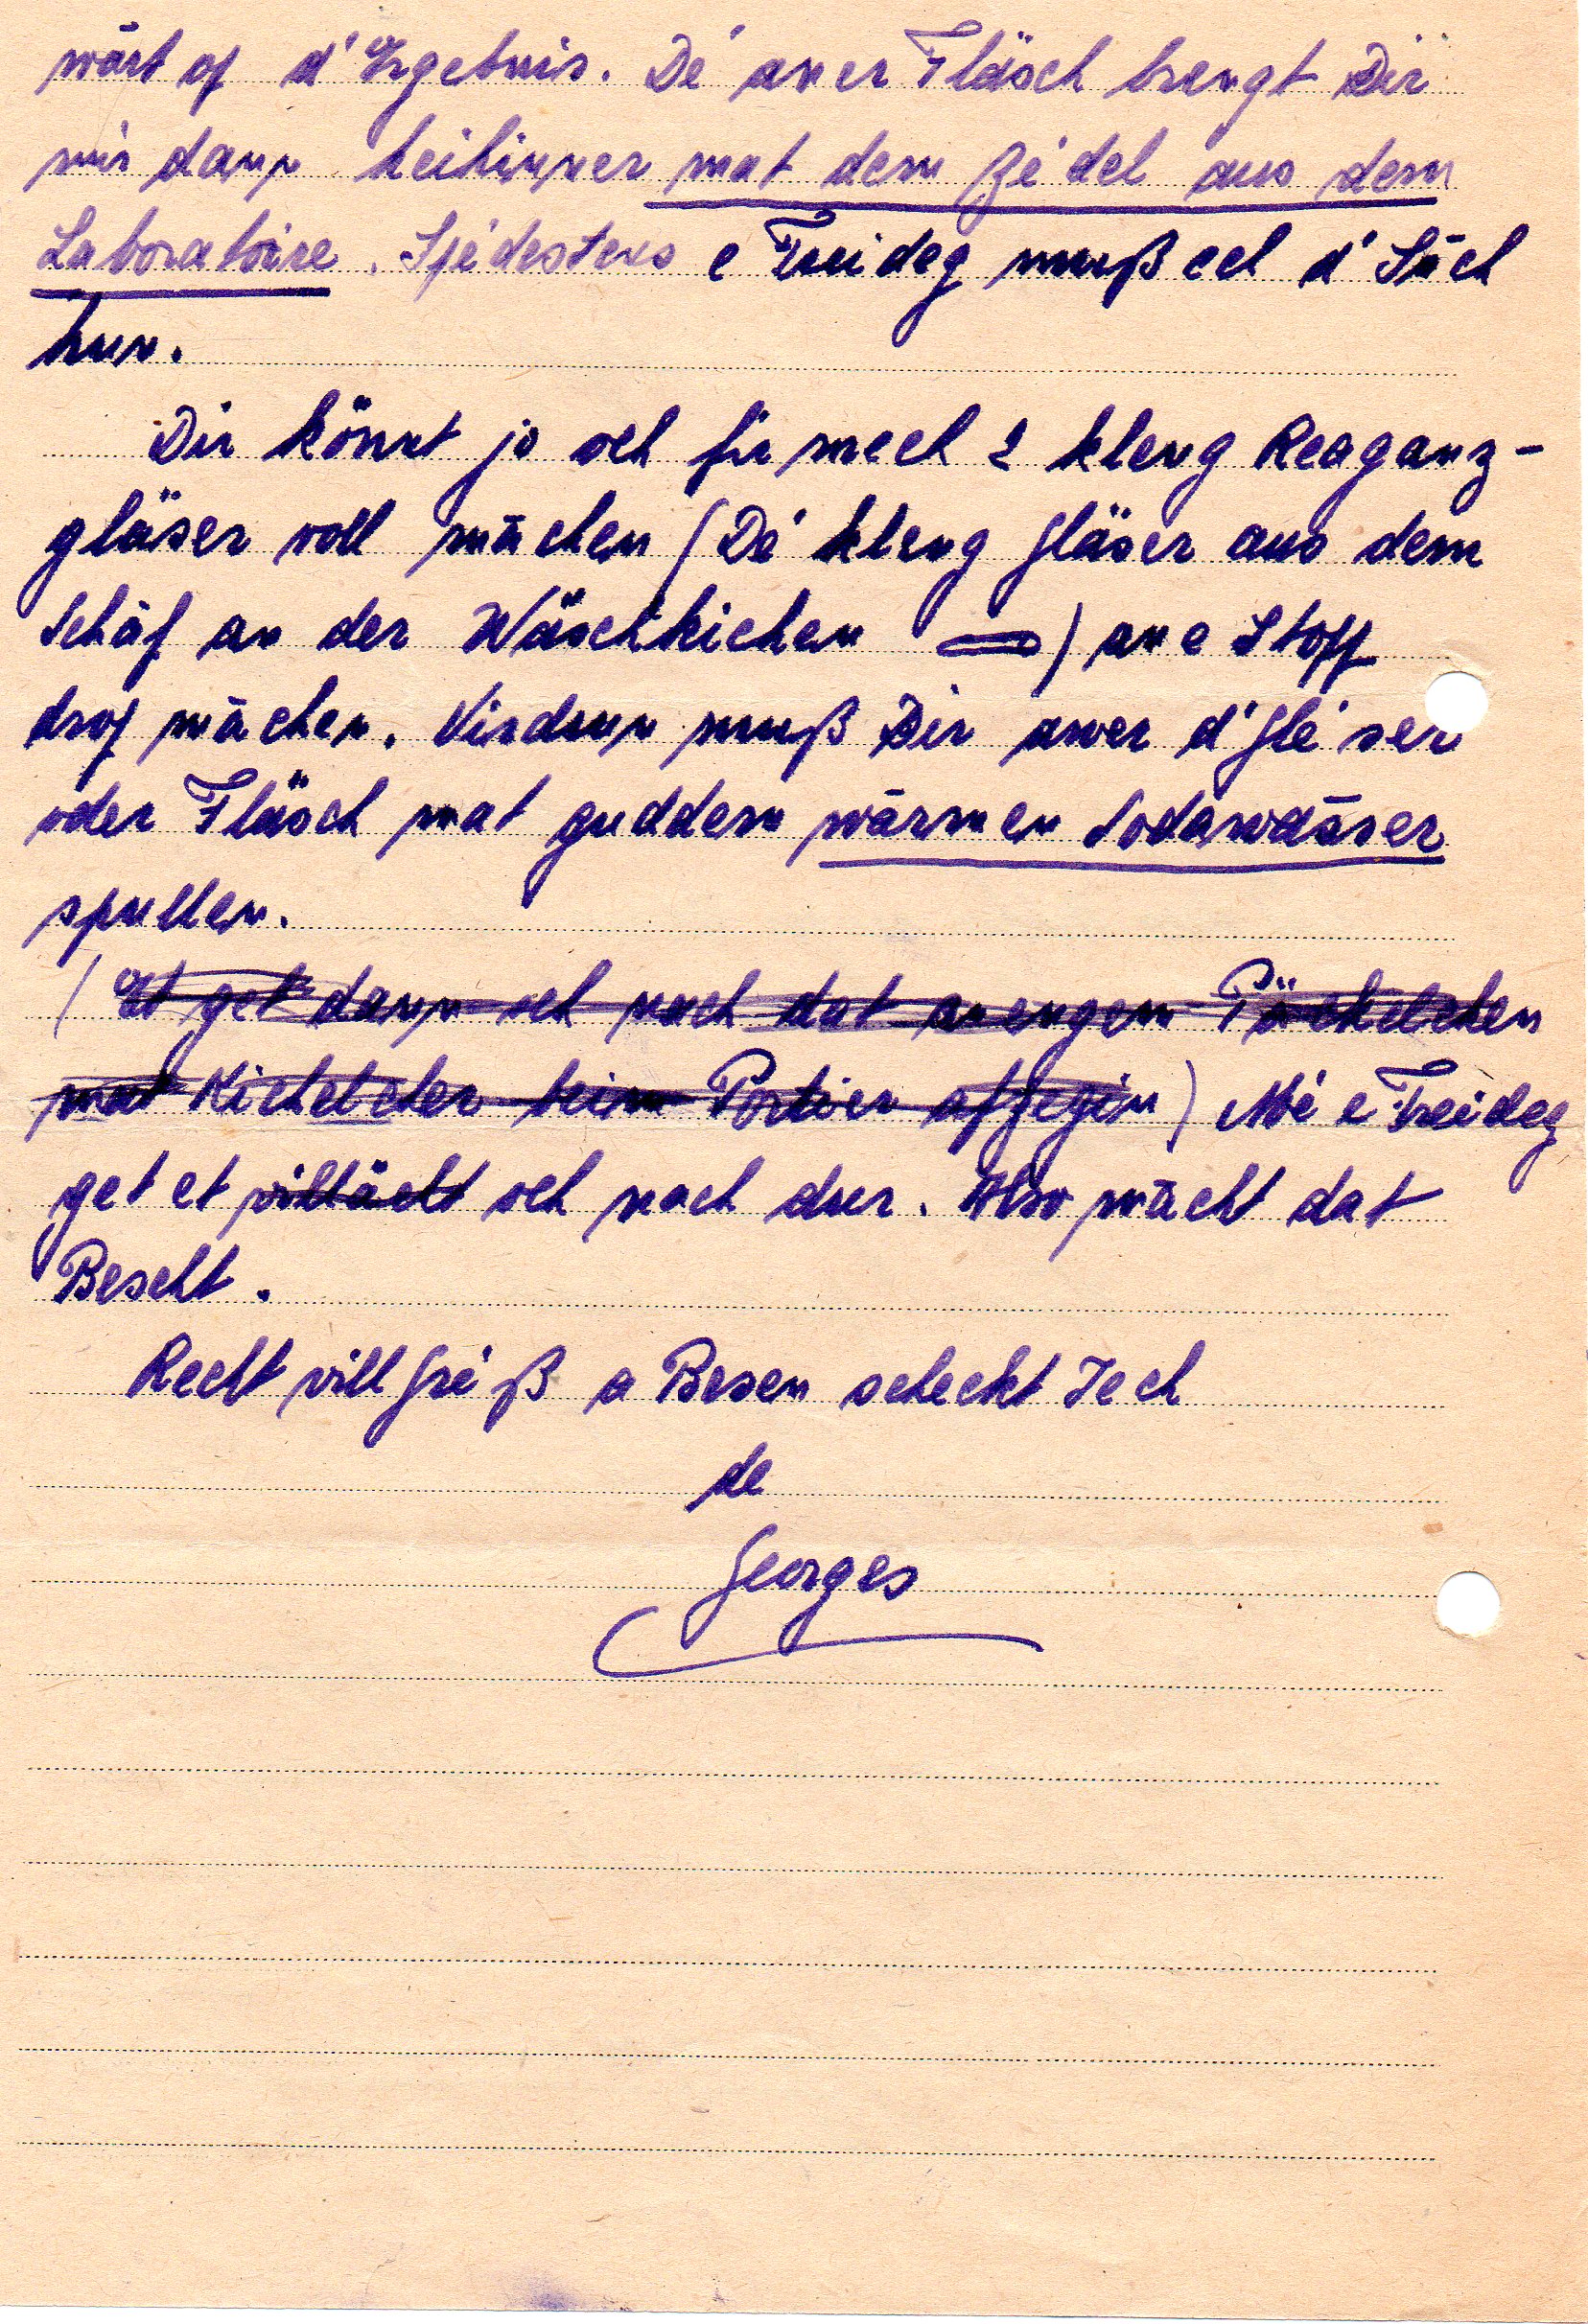 wärt op d'Ergebnis. Dé aner Fläsch brengt Dir
mir dann heihinner mat dem Zédel aus dem
Laboratoire. Spédestens e Freideg muß ech d'Säch
hun.
Dir könnt jo och fir mech 2 kleng Reaganz-
gläser voll mächen (Dé kleng Gläser aus dem
Schàf an der Wäschkichen ) an e Stopp
drop mächen. Virdrun muß Dir awer d'Gléser
oder Fläsch mat guddem wärmen Sodawässer
spullen.
(Et get dann och nach dat an engem Päckelchen
mat Kichelcher beim Portier ofzeginn) Mé e Freideg
get et villäicht och nach dur. Also mächt dat
Bescht.
Recht vill Gréß a Besen scheckt Iech
de
Georges